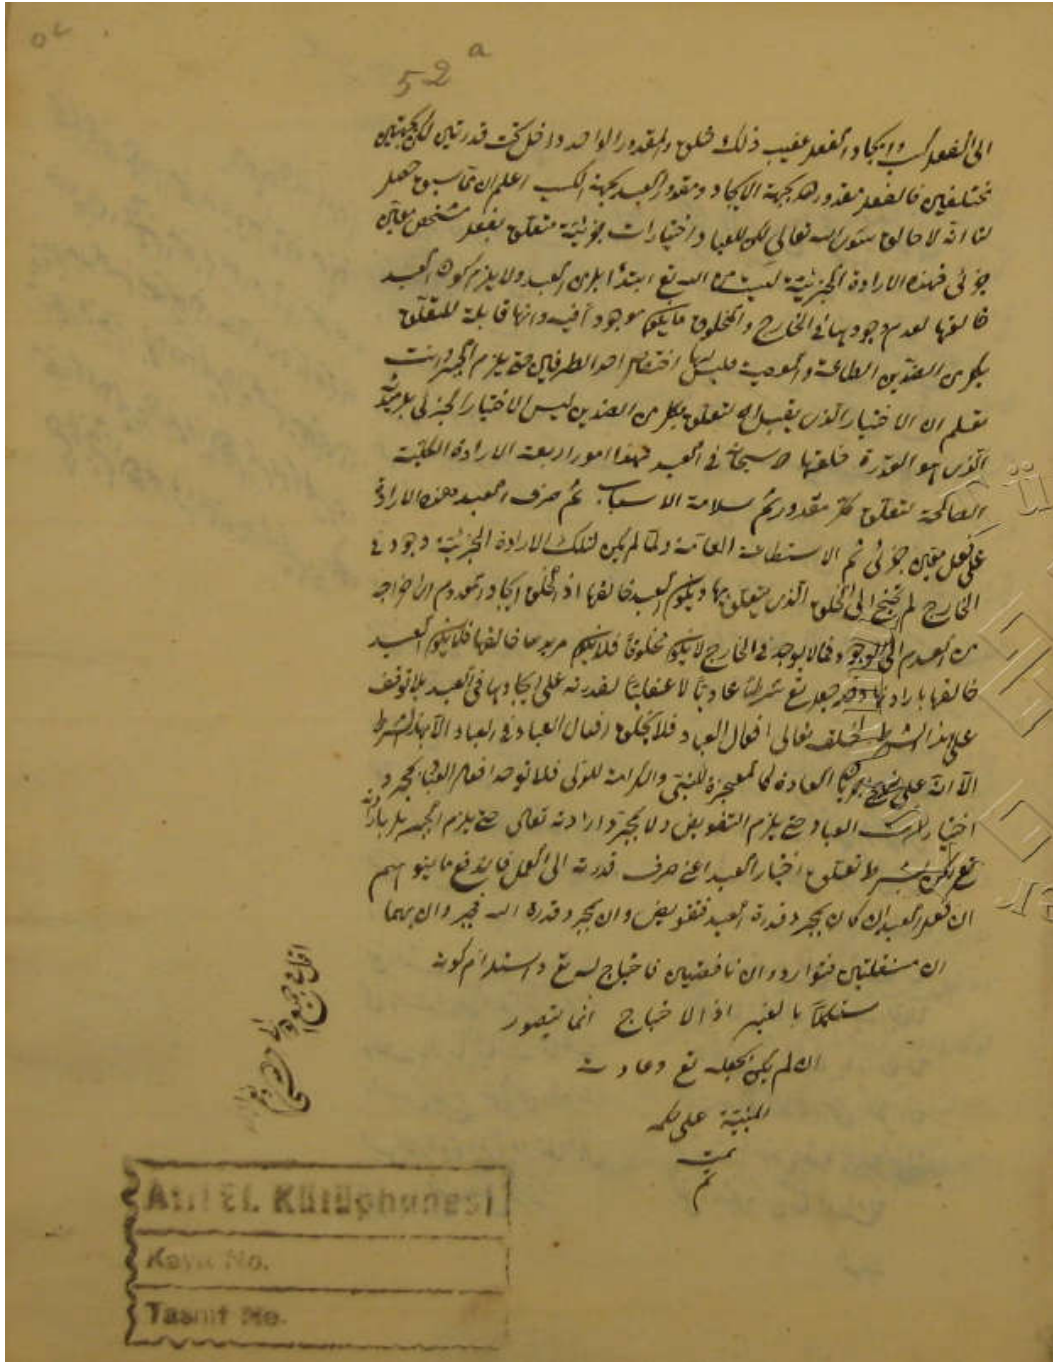 52 a
الى الفعل كسب وايجاد الفعل عقيب ذلك خلق والمقدور الواحد داخل تحت قدرتين لكن بجهتين
مختلفتين فالفعل مقدور الله بجهة الايجاد ومقدور العبد بجهة الكسب اعلم ان مما سبق حصل
لنا انه لا خالق سوى الله تعالى لكن للعباد اختيارات جزئية متعلق بفعل مشخص معين
جزئى فهذه الارادة الجزئية ليست من الله تع ابتدأ بل من العبد ولا يلزم كون العبد
خالقها لعدم وجودها فى الخارج والمخلوق ما يكون موجودا فيه وانها قابلة للتعلق
بكل من الضدين الطاعة والمعصية فليس لها اختصاص احد الطرفين حتى يلزم الجبر وانت
تعلم ان الاختيار الذى يقبل التعلق بكل من الضدين ليس الاختيار الجزئى بل
الذى هو القدرة خلقها الله سبحانه فى العبد فهذا امور اربعة الارادة الكلية
الصالحة لتعلق كل مقدور ثم سلامة الاسباب ثم صرف العبد هذه الارادة
على فعل معين جزئى ثم الاستطاعة العامة ولما لم يكن لتلك الارادة الجزئية وجود فى
الخارج لم تحتج الى الخلق الذى يتعلق بها ويكون العبد خالقها اذ الخلق ايجاد المعدوم اى اخراجه
من العدم الى الوجود فما لا يوجد فى الخارج لا يكون مخلوقا فلا يكون مريدها خالقها فلا يكون العبد
خالقها بارادتها وقد جعل تع شرطا عاديا لا عقليا لقدرته على ايجادها فى العبد بلا توقف
على هذا الشرط لخلقه تعالى افعال العباد فلا يخلق افعال العباد فى العباد الا بهذا الشرط
الا انه على العادة كالمعجزة للنبى والكرامة للولى فلا توجد افعال العباد بمجرد
اختيارات العباد حتى يلزم التفويض ولا بمجرد ارادته تعالى حتى يلزم الجبر بل بارادته
تع لكن بشرط تعلق اختيار العبد اعنى صرف قدرته الى الفعل فاندفع ما يتوهم
ان فعل العبد ان كان بمجرد قدرة العبد فتفويض وان بمجرد قدرة الله فجبر وان بهما
ان مستقلتين فتوارد وان ناقصتين فاحتياج لله تع واستلزام كونه
مستكملا بالغير اذ الاحتياج انما يتصور
ان لم يكن بجعله تع وعادته
المبنية على حكمه
تمت
تم
Atıf Ef. Kütüphanesi
Kayıt No.
Tasnif No.